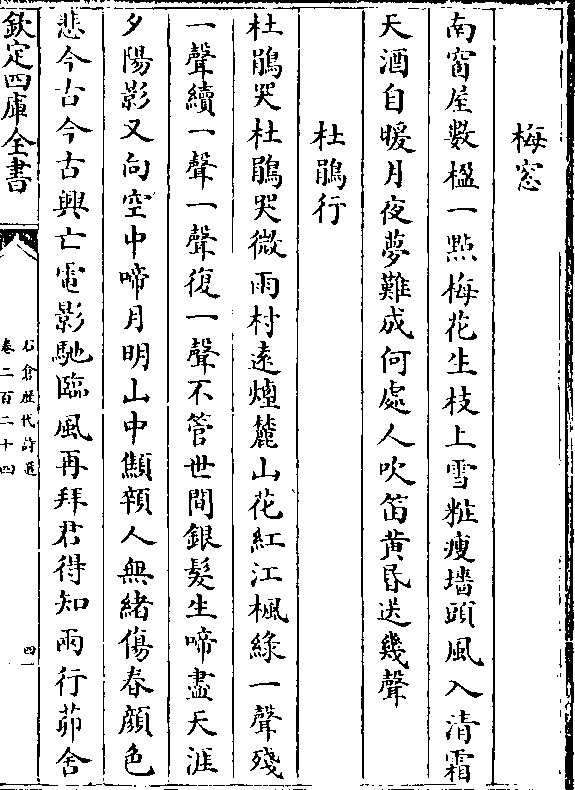 梅窓
南窗屋數楹一點梅花生枝上雪粧瘦墻頭風入清霜
天酒自暖月夜夢難成何處人吹笛黄昏送幾聲
杜鵑行
杜鵑哭杜鵑哭微雨村逺燈麓山花紅江楓綠一聲殘
一聲續一聲一聲復一聲不管世間銀髮生啼盡天涯
夕陽影又向空中啼月明山中顦顇人無緒傷春顔色
悲今古今古興亡電影馳臨風再拜君得知兩行茆舍
欽定四庫全書
石倉歴代詩選
卷二百二十四
四一